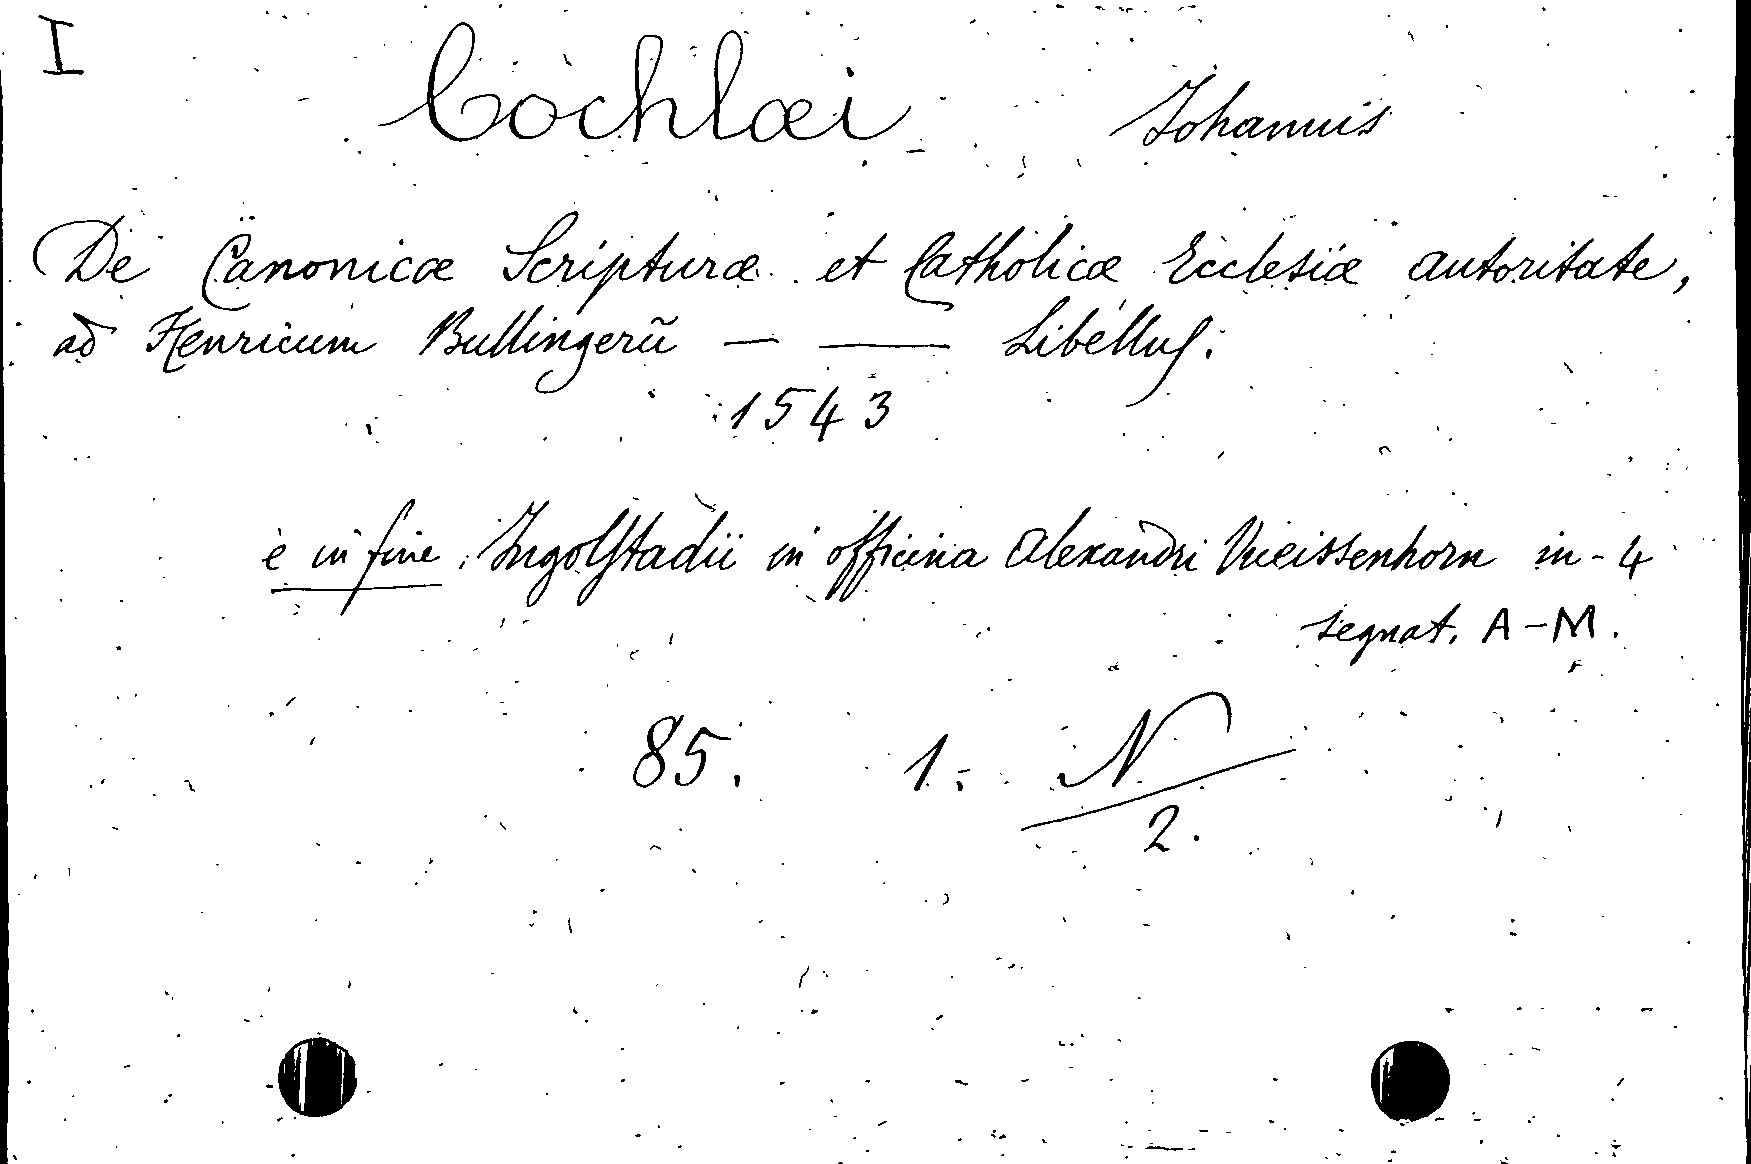 I
Cochlæi Johannis
De Canonicæ Scripturæ et Catholicæ Ecclesiæ autoritate,
ad Henricum Bullingerũ — — Libellus.
1543
e in fine Ingolstadii in officina Alexandri Weissenhorn in-4
segnat. A-M.
85. 1. N
2.